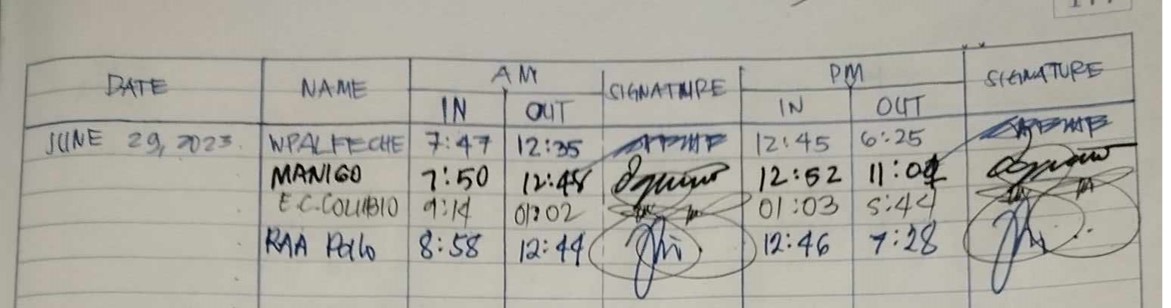 DATE NAME AM SIGNATURE PM SIGNATURE
IN OUT IN OUT
JUNE 29, 2023. WPALFECHE 7:47 12:35 12:45 6:25
MANIGO 7:50 12:48 12:52 11:04
E.C. COLUBIO 9:14 01:02 01:03 5:44
RAA Polo 8:58 12:44 12:46 7:28